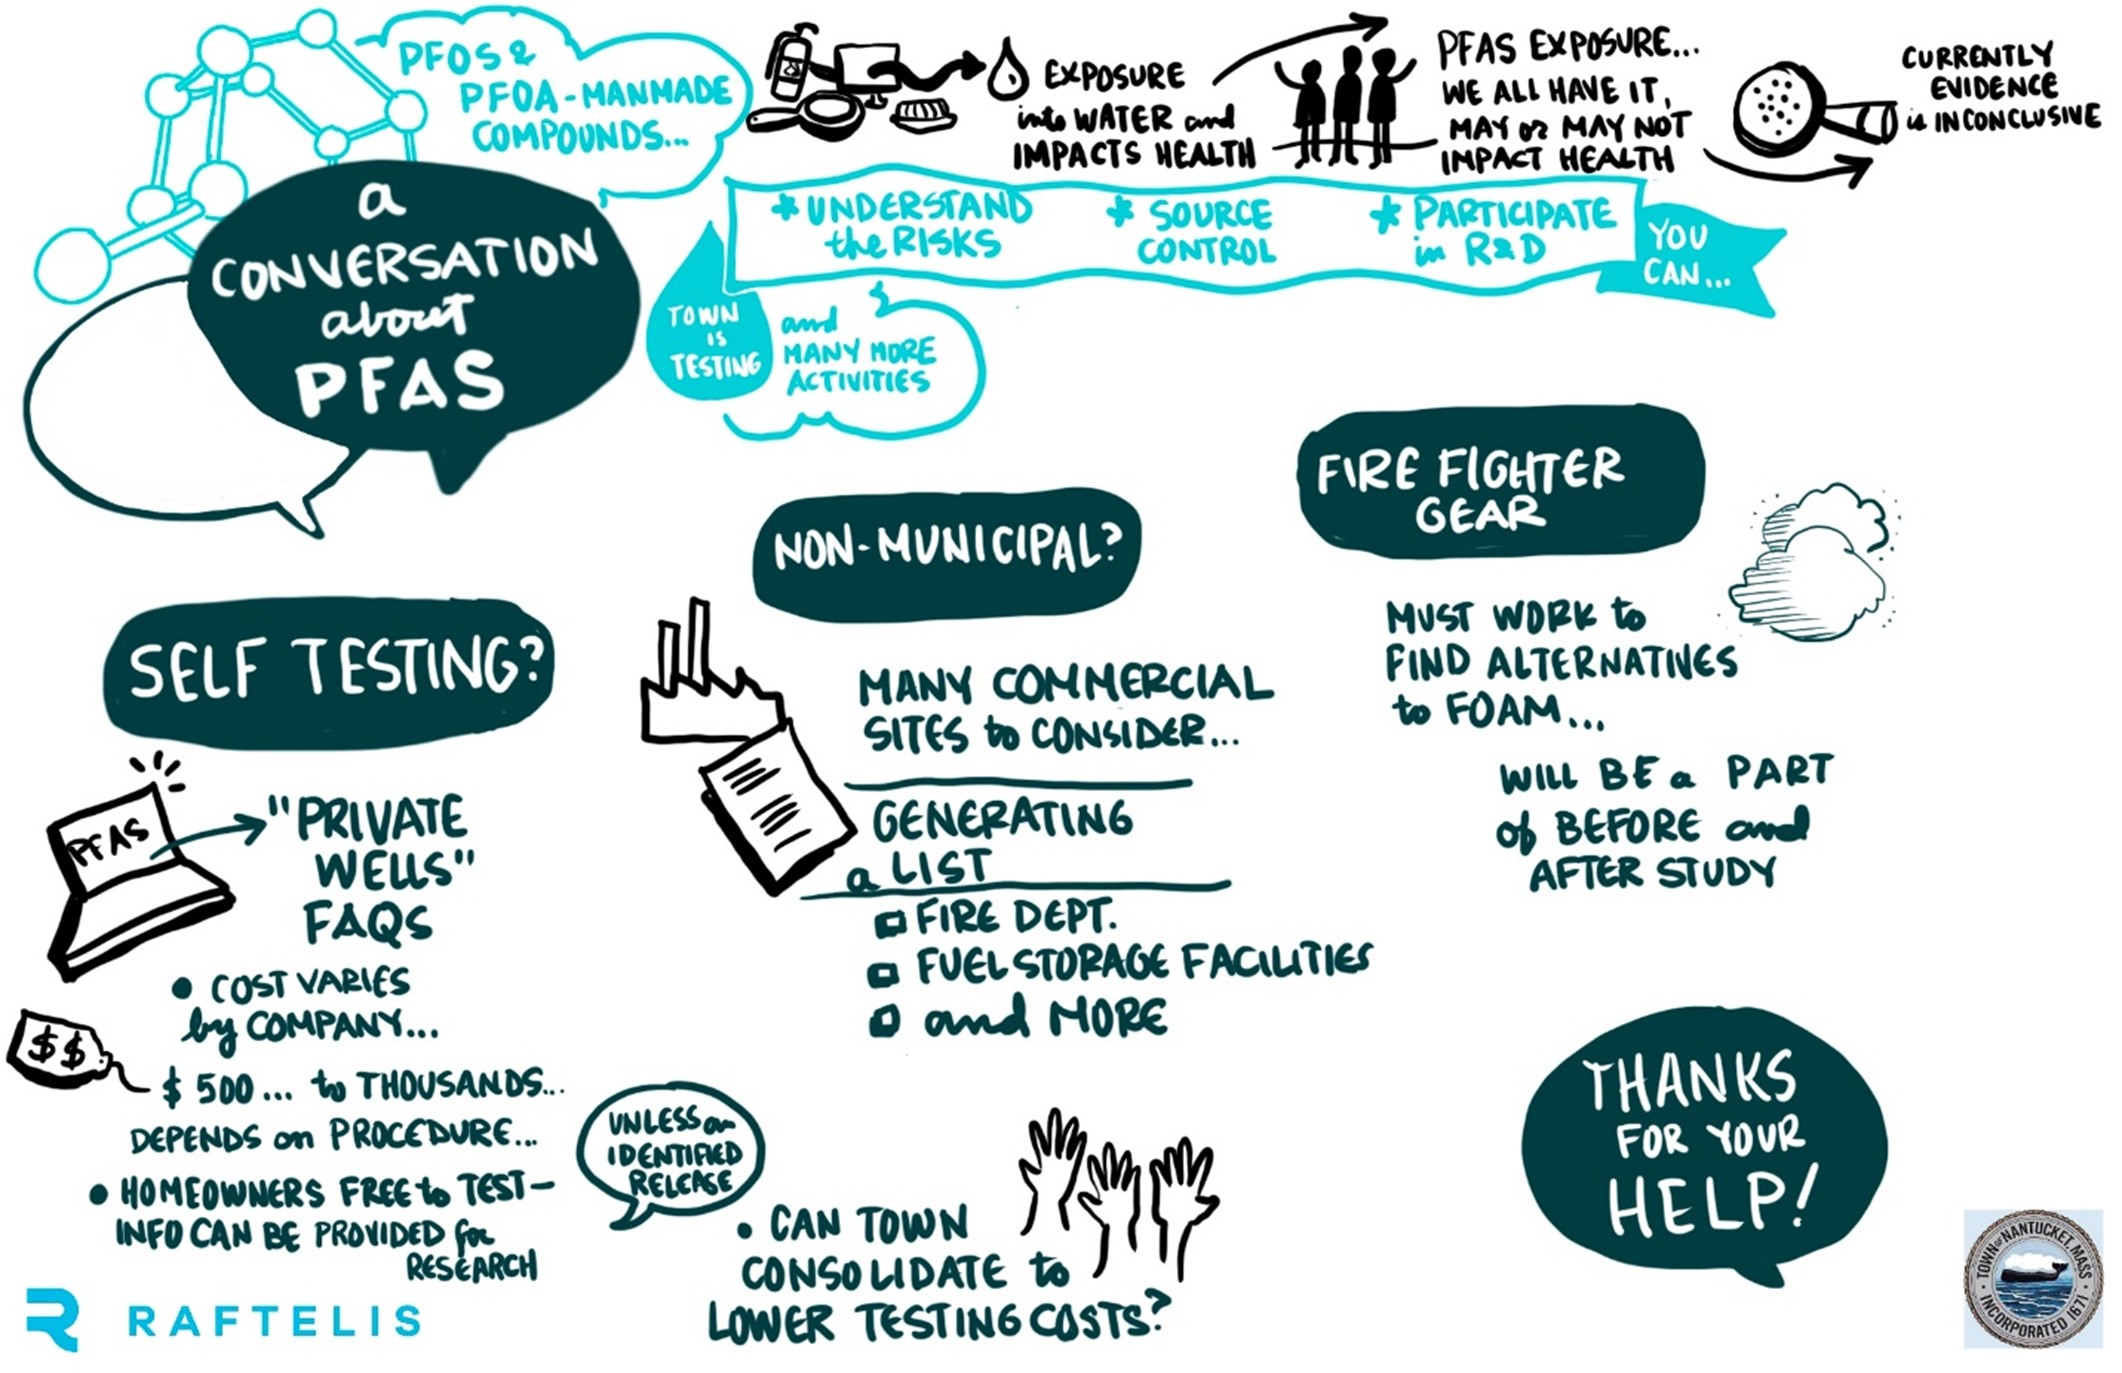 a
CONVERSATION
about
PFAS
PFOS &
PFOA - MANMADE
COMPOUNDS...
EXPOSURE
into WATER and
IMPACTS HEALTH
PFAS EXPOSURE...
WE ALL HAVE IT,
MAY or MAY NOT
IMPACT HEALTH
CURRENTLY
EVIDENCE
is INCONCLUSIVE
YOU
CAN...
* UNDERSTAND
the RISKS
* SOURCE
CONTROL
* PARTICIPATE
in R&D
TOWN
IS
TESTING
and
MANY MORE
ACTIVITIES
SELF TESTING?
PFAS
"PRIVATE
WELLS"
FAQS
• COST VARIES
by COMPANY...
$$
$ 500... to THOUSANDS...
DEPENDS on PROCEDURE...
• HOMEOWNERS FREE to TEST-
INFO CAN BE PROVIDED for
RESEARCH
UNLESS an
IDENTIFIED
RELEASE
• CAN TOWN
CONSOLIDATE to
LOWER TESTING COSTS?
NON-MUNICIPAL?
MANY COMMERCIAL
SITES to CONSIDER...
GENERATING
a LIST
FIRE DEPT.
FUEL STORAGE FACILITIES
and MORE
FIRE FIGHTER
GEAR
MUST WORK to
FIND ALTERNATIVES
to FOAM...
WILL BE a PART
of BEFORE and
AFTER STUDY
THANKS
FOR YOUR
HELP!
RAFTELIS
TOWN OF NANTUCKET, MASS
INCORPORATED 1671